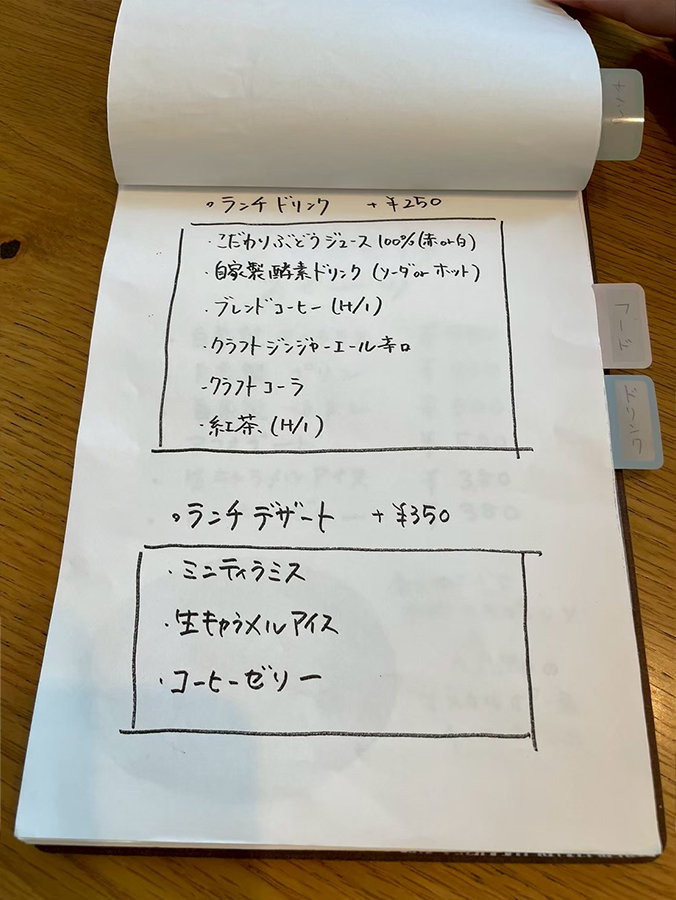 ◦ランチドリンク +¥250
・こだわりぶどうジュース100%(赤or白)
・自家製酵素ドリンク(ソーダorホット)
・ブレンドコーヒー(H/I)
・クラフトジンジャーエール辛口
・クラフトコーラ
・紅茶(H/I)
◦ランチデザート +¥350
・ミニティラミス
・生キャラメルアイス
・コーヒーゼリー
フード
ドリンク